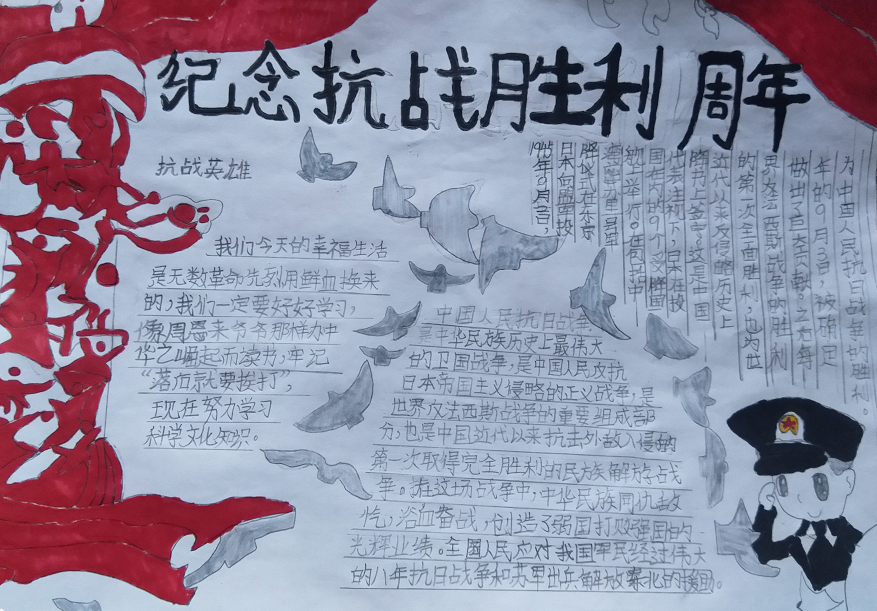 纪念抗战胜利 周年
抗战英雄
我们今天的幸福生活
是无数革命先烈用鲜血换来
的，我们一定要好好学习，
像周恩来爷爷那样为中
华之崛起而读书，牢记
“落后就要挨打”，
现在努力学习
科学文化知识。
中国人民抗日战争
是中华民族历史上最伟大
的卫国战争，是中国人民反抗
日本帝国主义侵略的正义战争，是
世界反法西斯战争的重要组成部
分，也是中国近代以来抗击外敌入侵的
第一次取得完全胜利的民族解放战
争。在这场战争中，中华民族同仇敌
忾，浴血奋战，创造了弱国打败强国的
光辉业绩。全国人民应对我国军民经过伟大
的八年抗日战争和苏军出兵解放东北的援助。
1945年9月2日，
日本向盟国投
降仪式在东京
近代以来反侵略历史上
的第一次全面胜利，也为世
界反法西斯战争的胜利
做出了巨大贡献。之后每
年的9月3日，被确定
为中国人民抗日战争的胜利。